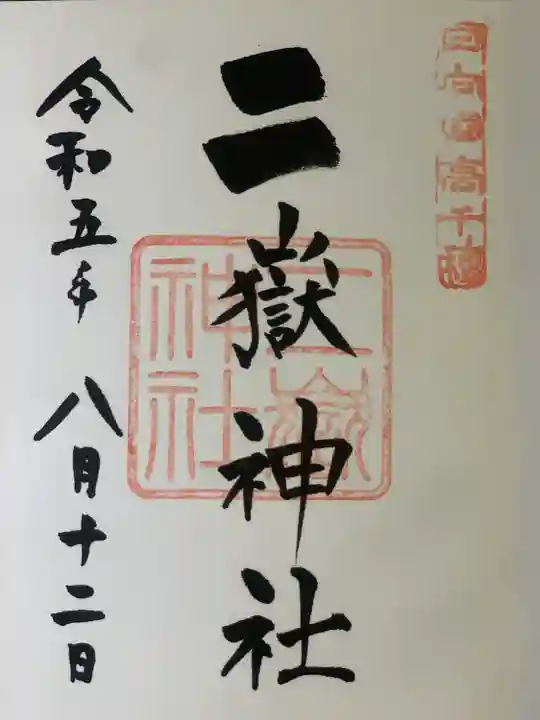 日向國高千穂
二嶽神社
二嶽神社
令和五年 八月十二日